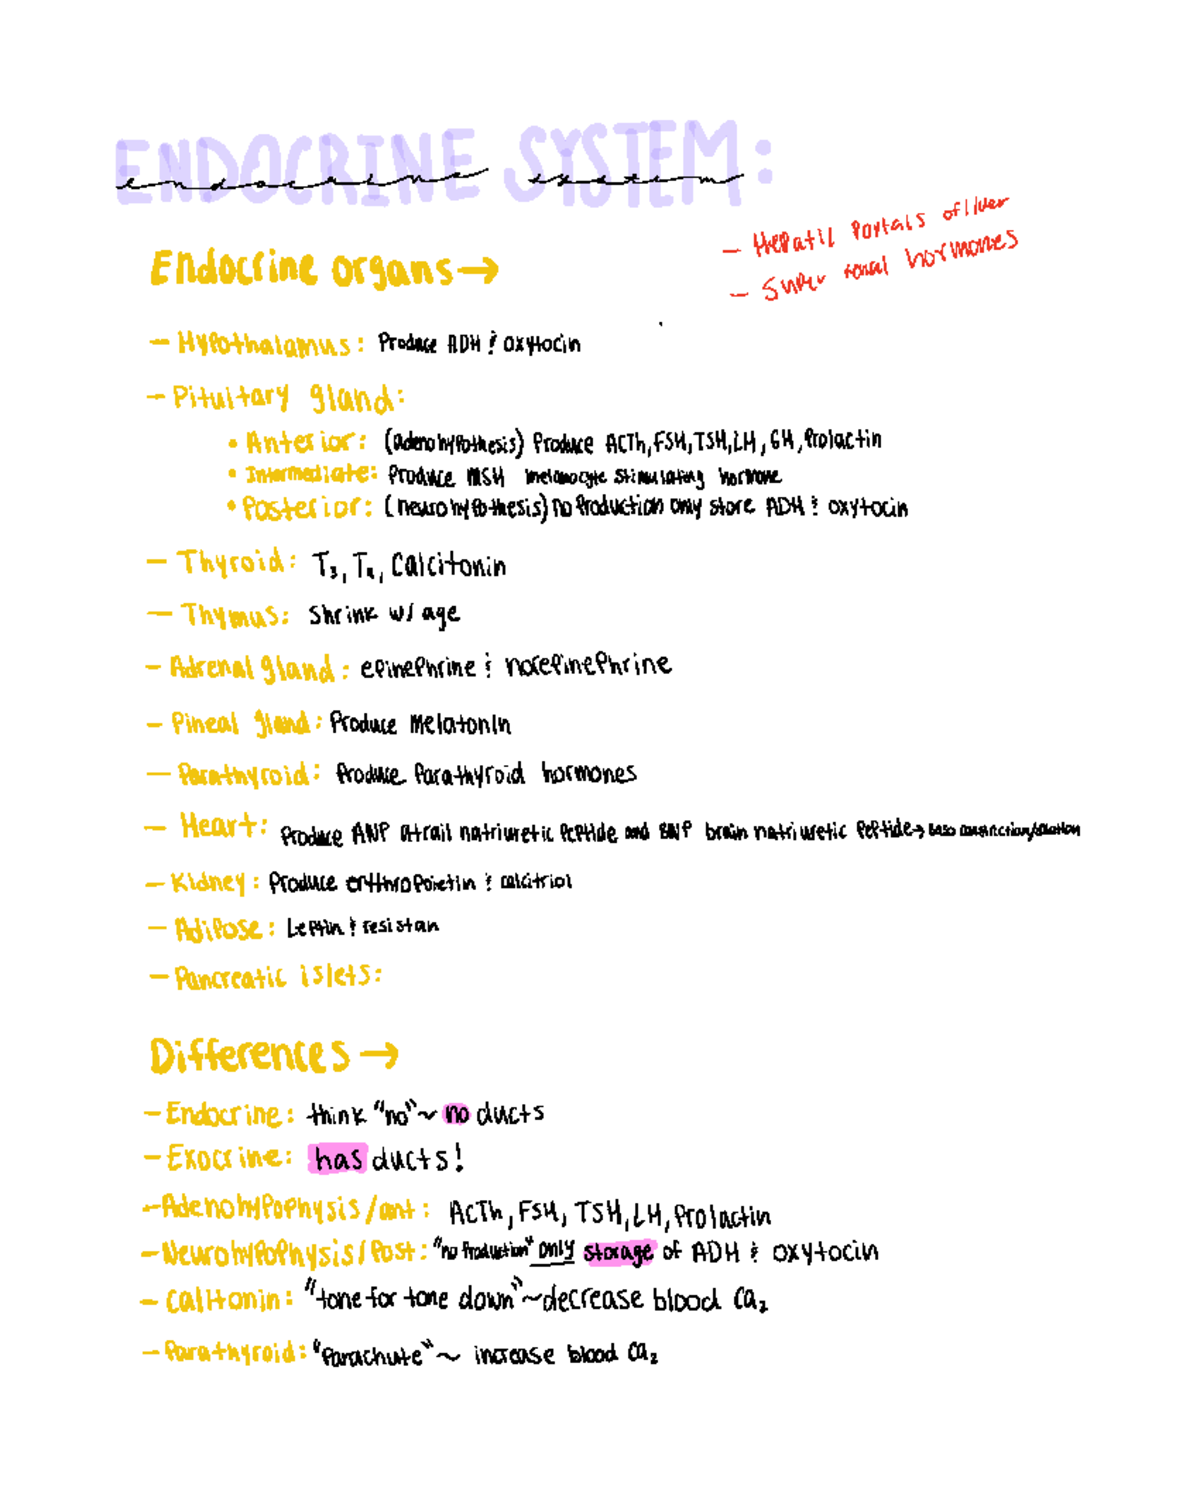 ENDOCRINE SYSTEM:
endocrine system
- Hepatil Portals of liver
- Super renal hormones
Endocrine organs→
- Hypothalamus: Produce ADH & oxytocin
- Pituitary gland:
• Anterior: (adenohypothesis) Produce ACTh, FSH, TSH, LH, GH, Prolactin
• Intermediate: Produce MSH melanocyte stimulating hormone
• Posterior: (neurohypothesis) no Production only store ADH & oxytocin
- Thyroid: T3, T4, Calcitonin
- Thymus: Shrink w/ age
- Adrenal gland: epinephrine & norepinephrine
- Pineal gland: Produce Melatonin
- Parathyroid: Produce Parathyroid hormones
- Heart: Produce ANP atrail natriuretic Peptide and BNP brain natriuretic Peptide→ vaso constriction/dilation
- Kidney: Produce erthropoietin & calcitriol
- Adipose: Leptin & resistan
- Pancreatic islets:
Differences→
- Endocrine: think "no"~ no ducts
- Exocrine: has ducts!
- Adenohypophysis/ant: ACTh, FSH, TSH, LH, Prolactin
- Neurohypophysis/Post: "no Production" only storage of ADH & oxytocin
- Calitonin: "tone for tone down"~decrease blood Ca2
- Parathyroid: "Parachute"~ increase blood Ca2